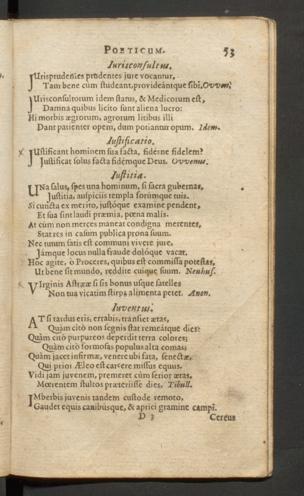 POETICUM. 53
Iurisconsultus.
IUrisprudentes prudentes jure vocantur,
Tam bene cum studeant, provideántque sibi. Owen.
IUrisconsultorum idem status, & Medicorum est,
Damna quibus licito sunt aliena lucro:
Hi morbis ægrorum, agrorum litibus illi
Dant patienter opem, dum potiantur opum. Idem.
Iustificatio.
IUstificant hominem sua facta, fidéne fidelem?
Justificat solus facta fidémque Deus. Ovvenus.
Iustitia.
UNa salus, spes una hominum, si sacra gubernas,
Justitia, auspiciis templa forúmque tuis.
Si cuncta ex merito, justóque examine pendent,
Et sua sint laudi præmia, pœna malis.
At cum non merces maneat condigna merentes,
Stat res in casum publica prona suum.
Nec tutum satis est communi vivere jure,
Jámque locus nulla fraude dolóque vacat.
Hoc agite, ô Proceres, quibus est commissa potestas,
Ut bene sit mundo, reddite cuique suum. Neuhus.
VIrginis Astrææ si sis bonus usque satelles
Non tua vicatim stirps alimenta petet. Anon.
Iuventus.
AT si tardus eris, errabis, transiet ætas,
Quàm citò non segnis stat remeátque dies?
Quàm citò purpureos deperdit terra colores;
Quàm citò formosas populus alta comas;
Quàm jacet infirmæ, venere ubi fata, senectæ,
Qui prior Æleo est carcere missus equus.
Vidi jam juvenem, premeret cùm serior ætas,
Mœrentem stultos præteriisse dies. Tibull.
IMberbis juvenis tandem custode remoto,
Gaudet equis canibúsque, & aprici gramine campi.
D 3 Cereus